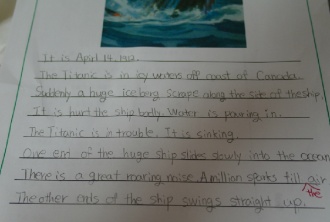 It is April 14, 1912.
The Titanic is in icy waters off coast of Canada.
Suddenly a huge iceberg scrape along the side of the ship.
It is hurt the ship badly Water is pouring in.
The Titanic is in trouble. It is sinking.
One end of the huge ship slides slowly into the ocean
There is a great roaring noise A million sparks fill air
the
The other ends of the ship swings straight up.